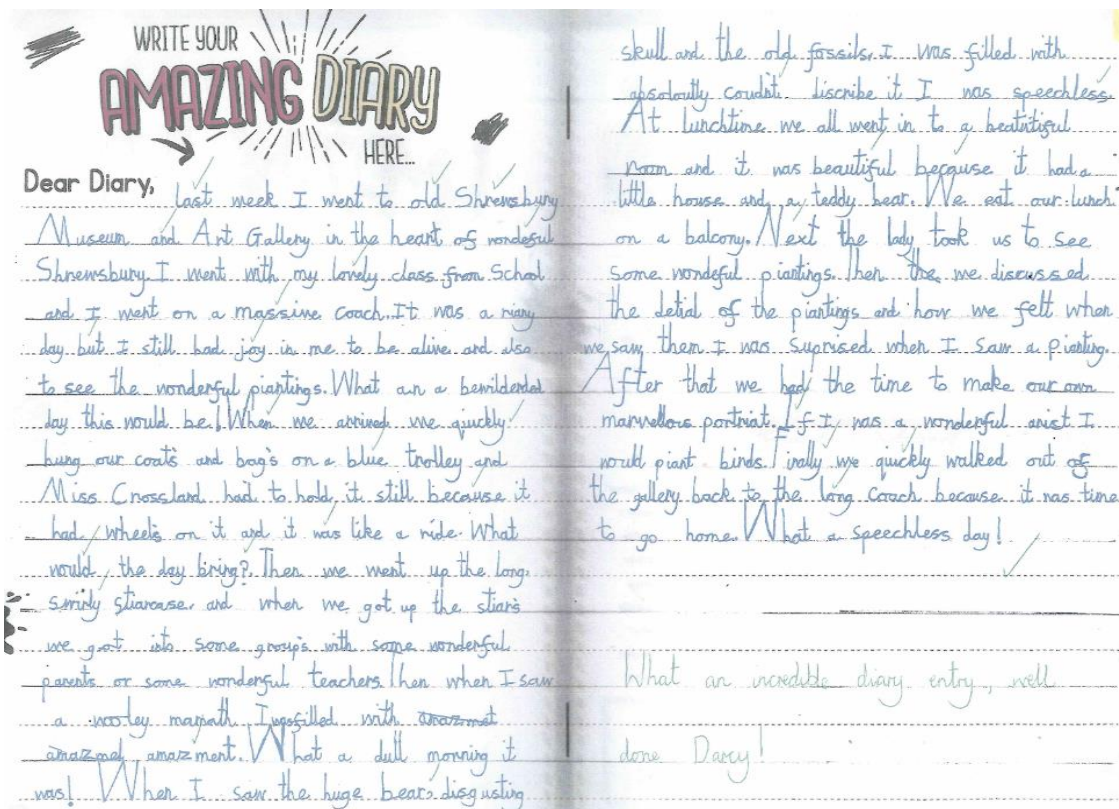 WRITE YOUR
AMAZING DIARY
HERE...
Dear Diary,
last week I went to old Shrewsbury
Museum and Art Gallery in the heart of wondeful
Shrewsbury. I went with my lovely class from School
and I went on a massive coach. It was a riany
day but I still had joy in me to be alive and also
to see the wonderful piantings. What an a bewilderded
day this would be! When we arrived we quickly
hung our coats and bag's on a blue trolley and
Miss Crossland had to hold it still because it
had wheels on it and it was like a ride. What
would the day biring? Then we went up the long,
swirly stiarcase and when we got up the stiars
we got into some group's with some wonderful
parents or some wonderful teachers. Then when I saw
a wooley mamath I was filled with amazmet
amazmet amazment. What a dull morning it
was! When I saw the huge bear, disgusting
skull and the old fossils. I was filled with
absoloutly coudn't discribe it I was speechless.
At lunchtime we all went in to a beatutiful
room and it was beautiful because it had a
little house and a teddy bear. We eat our lunch
on a balcony. Next the lady took us to see
some wondeful piantings. Then the we discussed
the detial of the piantings and how we felt when
we saw them I was Suprised when I saw a pianting.
After that we had the time to make our own
marvellous portriat. If I was a wonderful arist I
would piant birds. Finally we quickly walked out of
the gallery back to the long Coach because it was time
to go home. What a speechless day!
What an incredible diary entry, well
done Darcy!